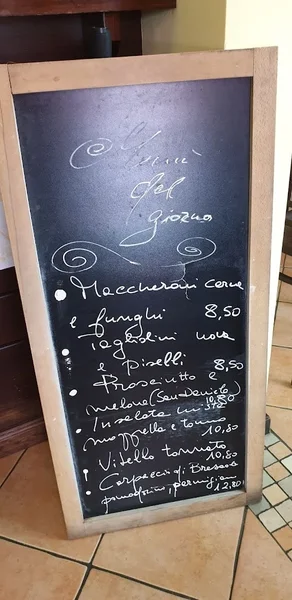 Menù
del
giorno
Maccheroni carne
e funghi 8,50
Tagliolini
e Piselli 8,50
Prosciutto e
melone (San Daniele)
10,80
Insalata mista
mozzarella e tonno
10,80
Vitello tonnato
10,80
Carpaccio di Bresaola
pomodorino, parmigiano
12,80